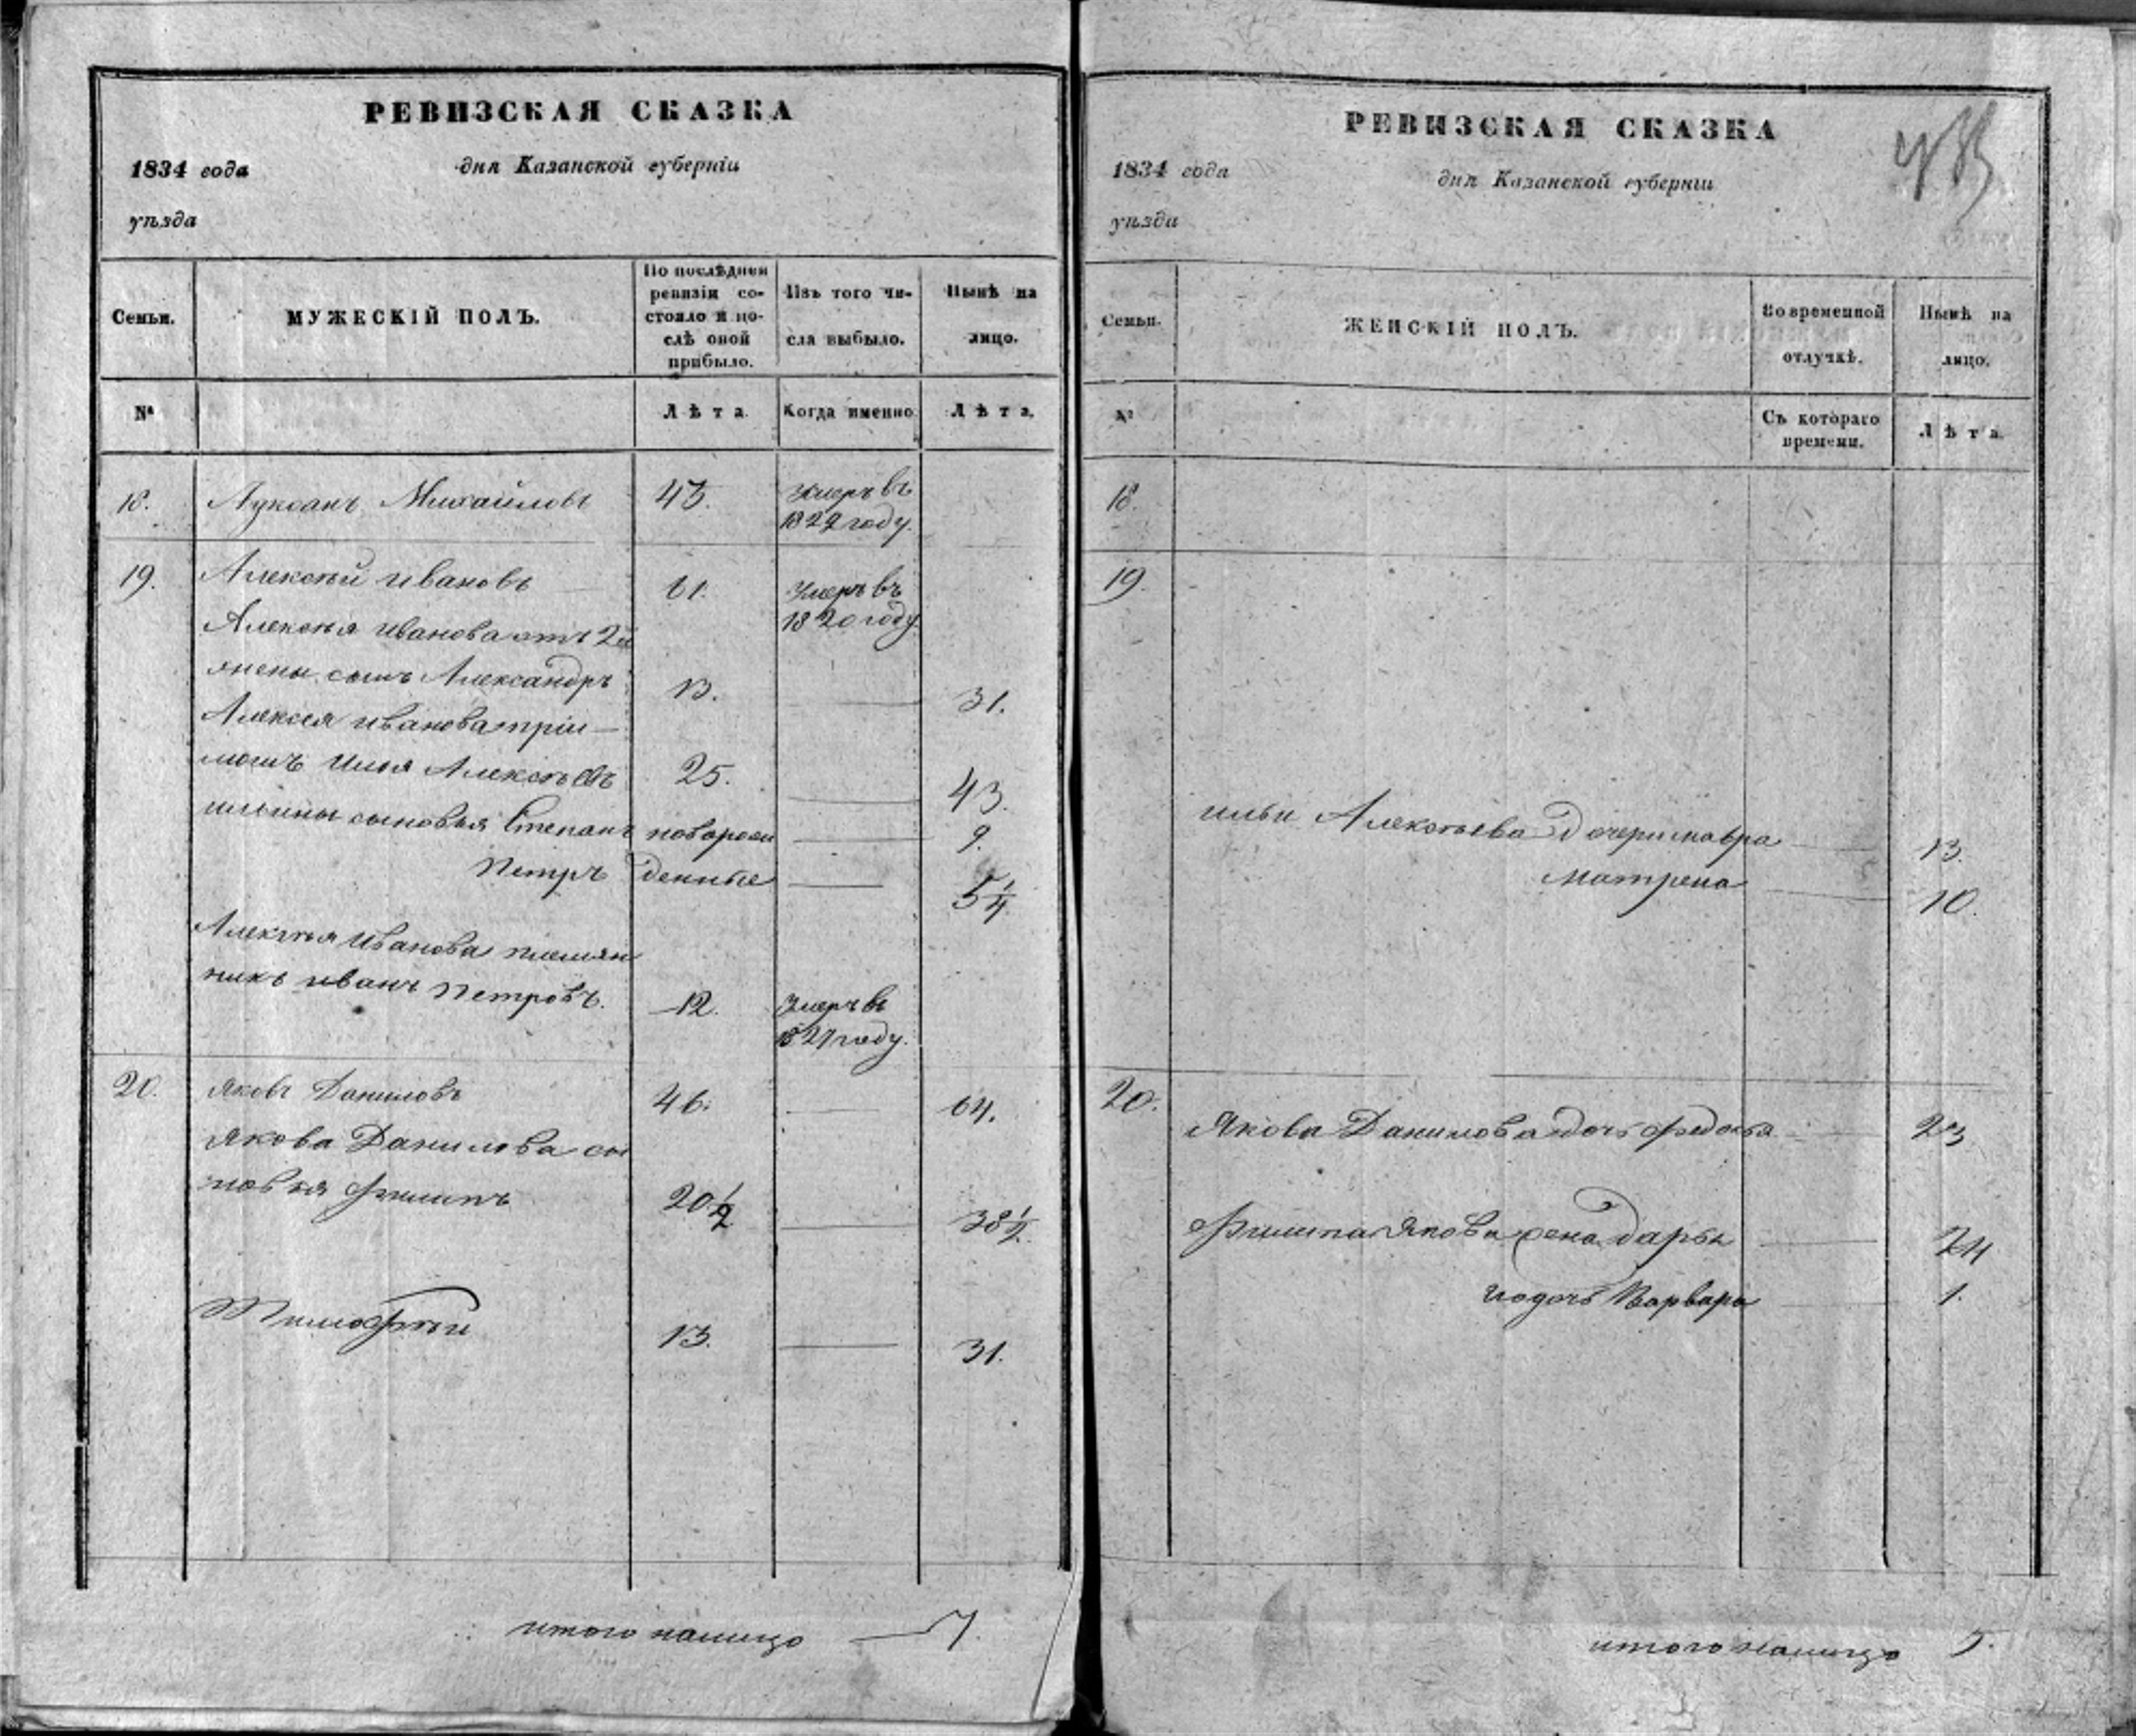 РЕВИЗСКАЯ СКАЗКА
1834 года
дня Казанской губерніи
уѣзда
Семьи.
МУЖЕСКІЙ ПОЛЪ.
По послѣдней
ревизіи со-
стояло и по-
слѣ оной
прибыло.
Изъ того чи-
сла выбыло.
Нынѣ на
лицо.
№
Лѣта
Когда именно
Лѣта.
18. Лукоанъ Михайловъ 43. Умеръ въ
1822 году.
19. Алексѣй Ивановъ 61. Умеръ въ
1820 году.
Алексѣя Иванова отъ 2й
жены сынъ Александръ 13. 31.
Алексея Иванова прiи-
мошъ Илья Алексѣевъ 25. 43.
ильины сыновья Степанъ новорож 9.
Петръ денные 5 1/4
Алексѣя Иванова племян
никъ Иванъ Петровъ. 12. Умеръ въ
1827 году.
20. Яковъ Даниловъ 46. 64.
Якова Данилова сы
новья Филипъ 20 1/2 38 1/2
Тимофѣй 13. 31.
итого налицо 7.
РЕВИЗСКАЯ СКАЗКА
1834 года
дня Казанской губерніи
уѣзда
Семьи.
ЖЕНСКІЙ ПОЛЪ.
Во временной
отлучкѣ.
Нынѣ на
лицо.
№
Съ котораго
времени.
Лѣта.
18.
19.
ильи Алексѣева дочери мавра 13.
Матрена 10.
20. Якова Данилова дочь Федосья 23
Филипа Якова жена Дарья 24
Ихъ дочь Варвара 1.
итого налицо 5.